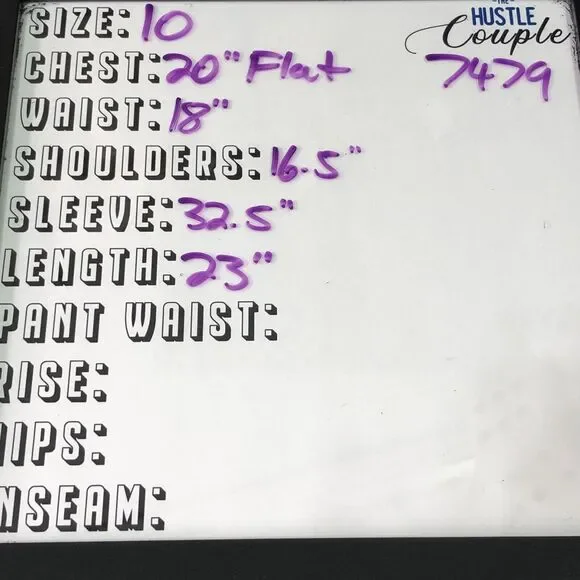 SIZE: 10
THE
HUSTLE
Couple
CHEST: 20" Flat
7479
WAIST: 18"
SHOULDERS: 16.5"
SLEEVE: 32.5"
LENGTH: 23"
PANT WAIST:
RISE:
HIPS:
NSEAM: